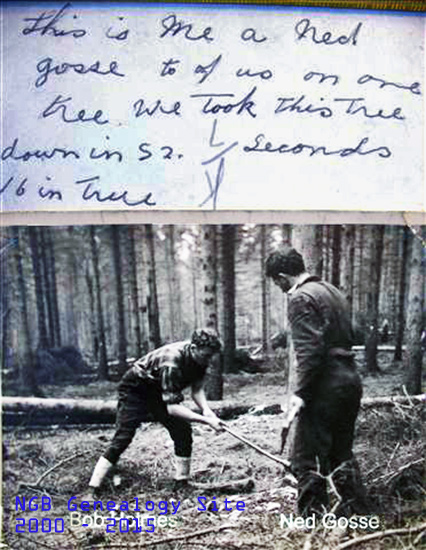 this is Me a Ned
gosse to of us on one
tree. We Took this Tree
down in 52. Seconds
16 in Tree
NGB Genealogy Site
2000 - 2015
Bob
Ned Gosse